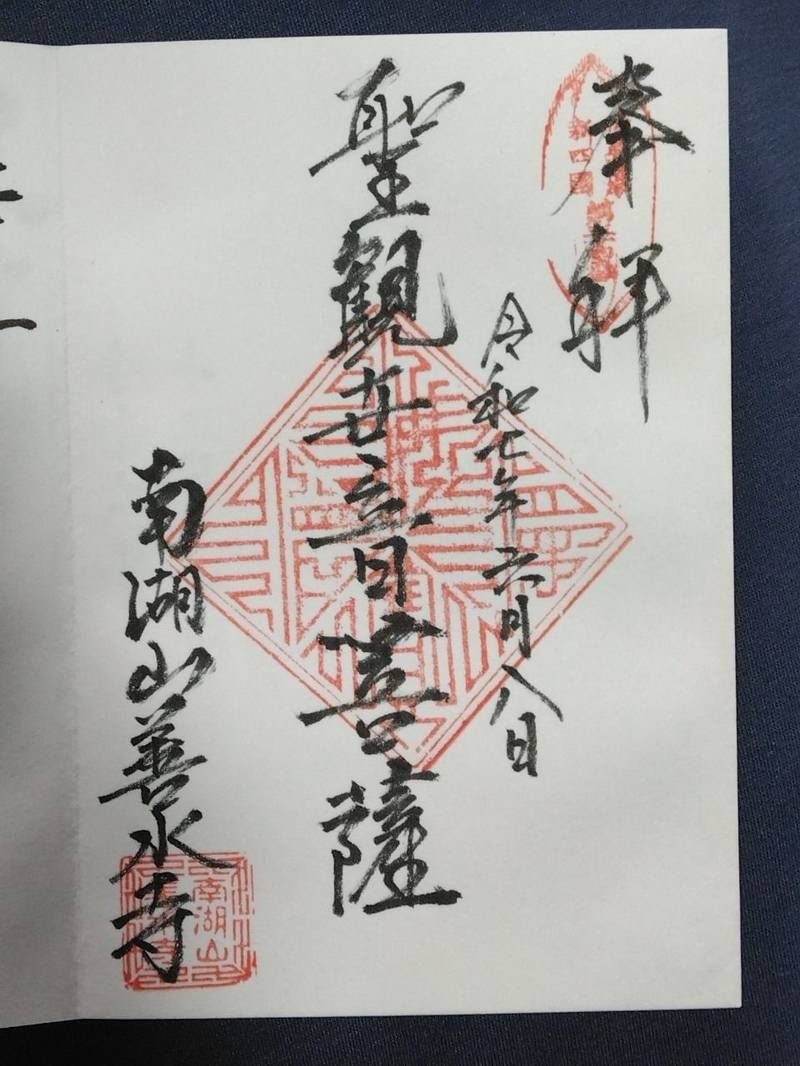 奉拝
令和七年六月八日
聖観世音菩薩
南湖山善水寺
南湖山